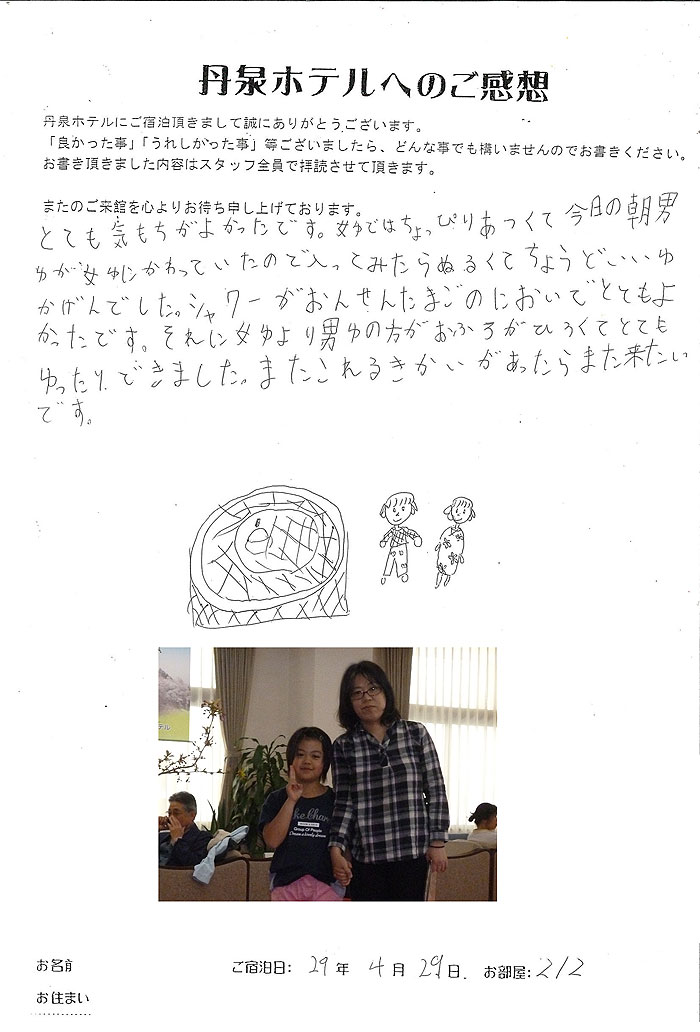 丹泉ホテルへのご感想
丹泉ホテルにご宿泊頂きまして誠にありがとうございます。
「良かった事」「うれしかった事」等ございましたら、どんな事でも構いませんのでお書きください。
お書き頂きました内容はスタッフ全員で拝読させて頂きます。
またのご来館を心よりお待ち申し上げております。
とても気もちがよかったです。女ゆではちょっぴりあつくて今日の朝男
ゆが女ゆにかわっていたので入ってみたらぬるくてちょうどいいゆ
かげんでした。シャワーがおんせんたまごのにおいでとてもよ
かったです。それに女ゆより男ゆの方がおふろがひろくてとても
ゆったりできました。またこれるきかいがあったらまた来たい
です。
テル
Group Of People
お名前 ご宿泊日: 29年 4月 29日. お部屋: 212
お住まい